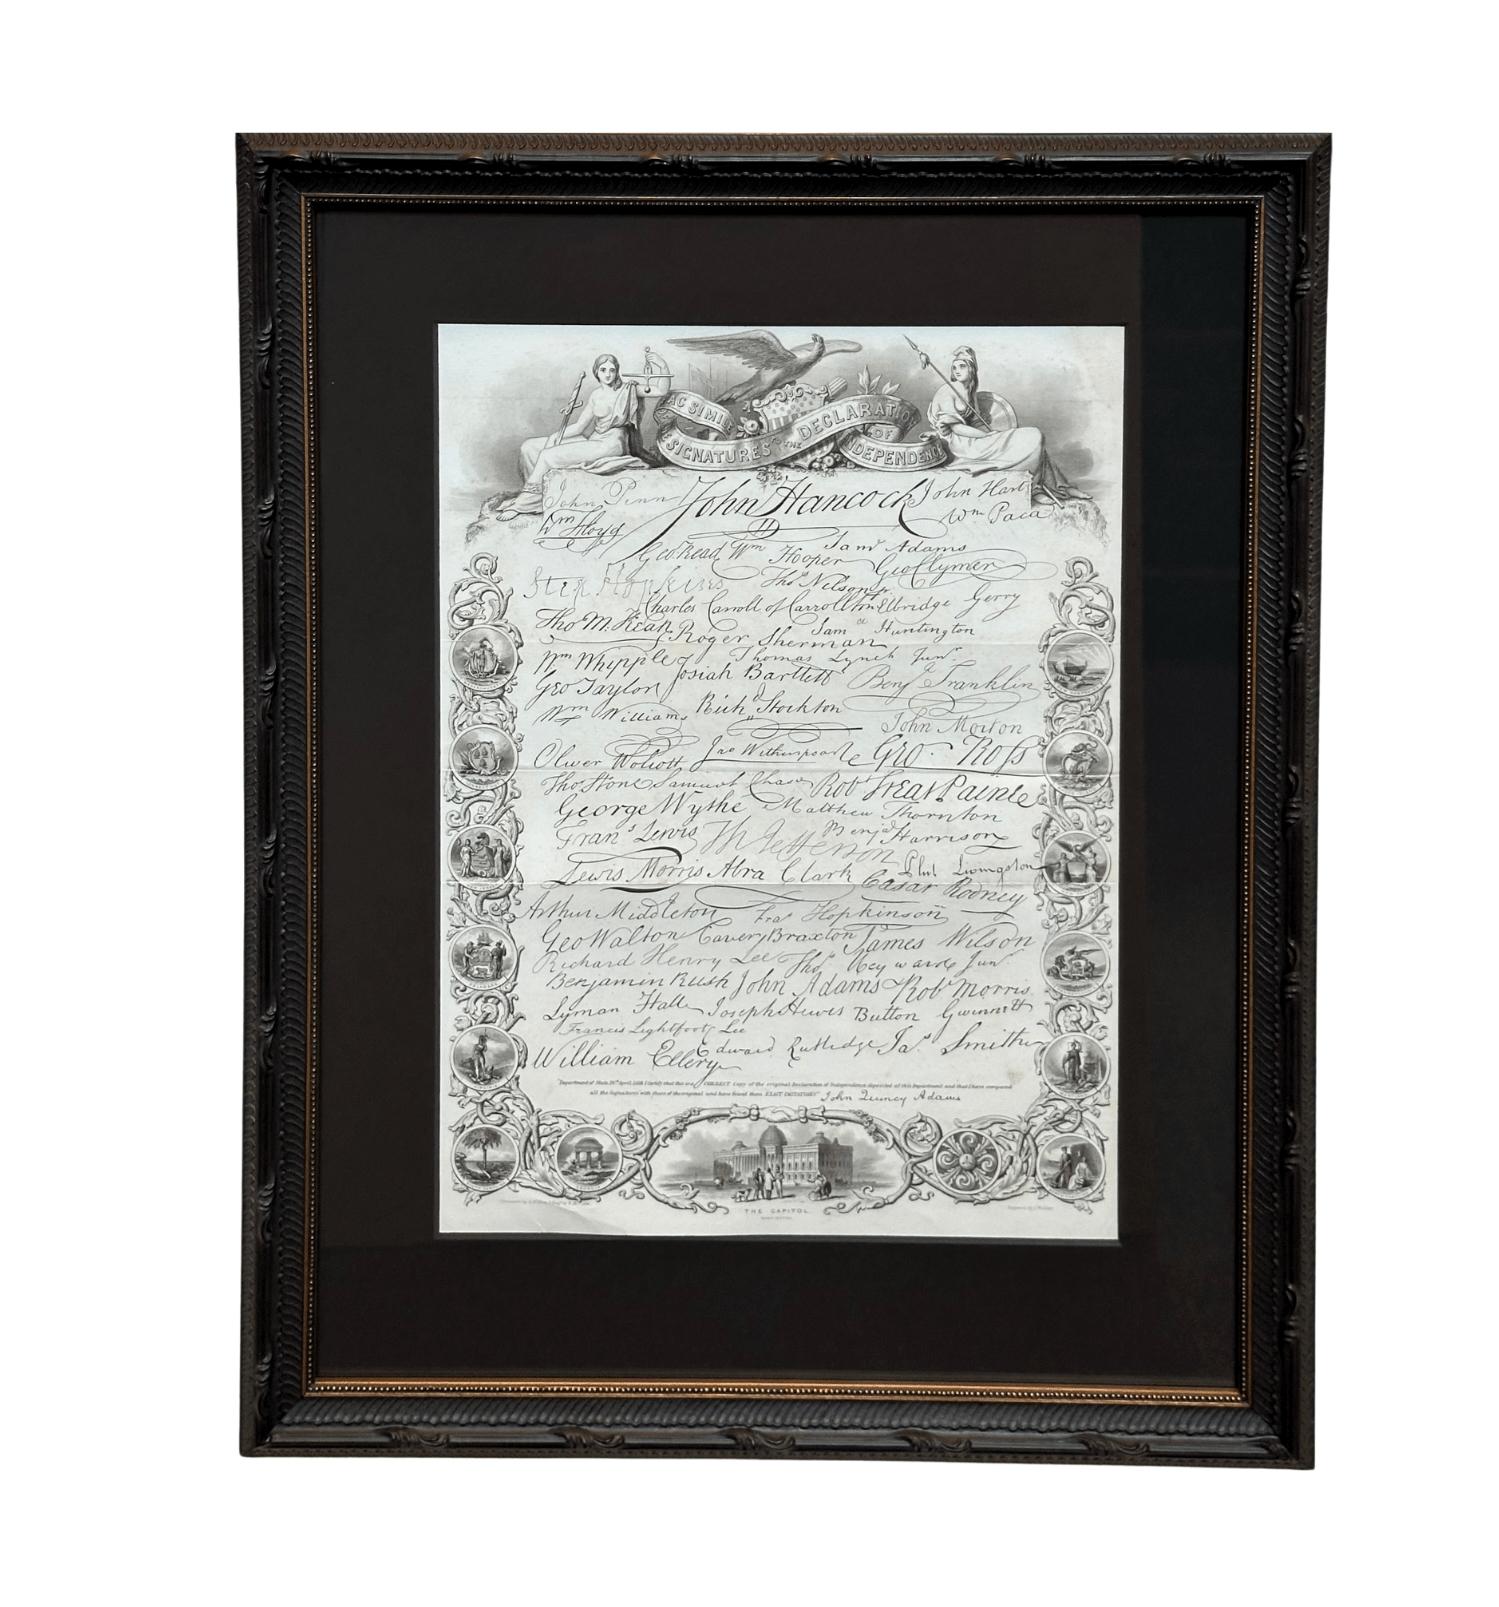 FAC SIMILE
SIGNATURES TO THE
DECLARATION
OF
INDEPENDENCE
John Penn John Hancock John Hart
Wm Floyd Wm Paca
Geo Read Wm Hooper Saml Adams
Geo Clymer
Step Hopkins Thos Nelson jr.
Charles Carroll of Carrollton Elbridge Gerry
Tho M. Kean Roger Sherman Saml Huntington
Wm Whipple Josiah Bartlett Thomas Lynch Junr
Geo Taylor Benj Franklin
Wm Williams Richd Stockton John Morton
Oliver Wolcott Jno Witherspoon Geo. Ross
Thos Stone Samuel Chase Robt Treat Paine
George Wythe Matthew Thornton
Frans Lewis Th Jefferson Benja Harrison
Lewis Morris Abra Clark Phil Livingston
Cæsar Rodney
Arthur Middleton Fras Hopkinson
Geo Walton Carter Braxton James Wilson
Richard Henry Lee Thos Heyward Junr
Benjamin Rush John Adams Robt Morris
Lyman Hall Joseph Hewes Button Gwinnett
Francis Lightfoot Lee
William Ellery Edward Rutledge Jas Smith
Department of State, April, I Certify that this is a CORRECT Copy of the original Declaration of Independence deposited at this Department and that I have compared
all the signatures with those of the original and have found them EXACT IMITATIONS" John Quincy Adams
THE CAPITOL